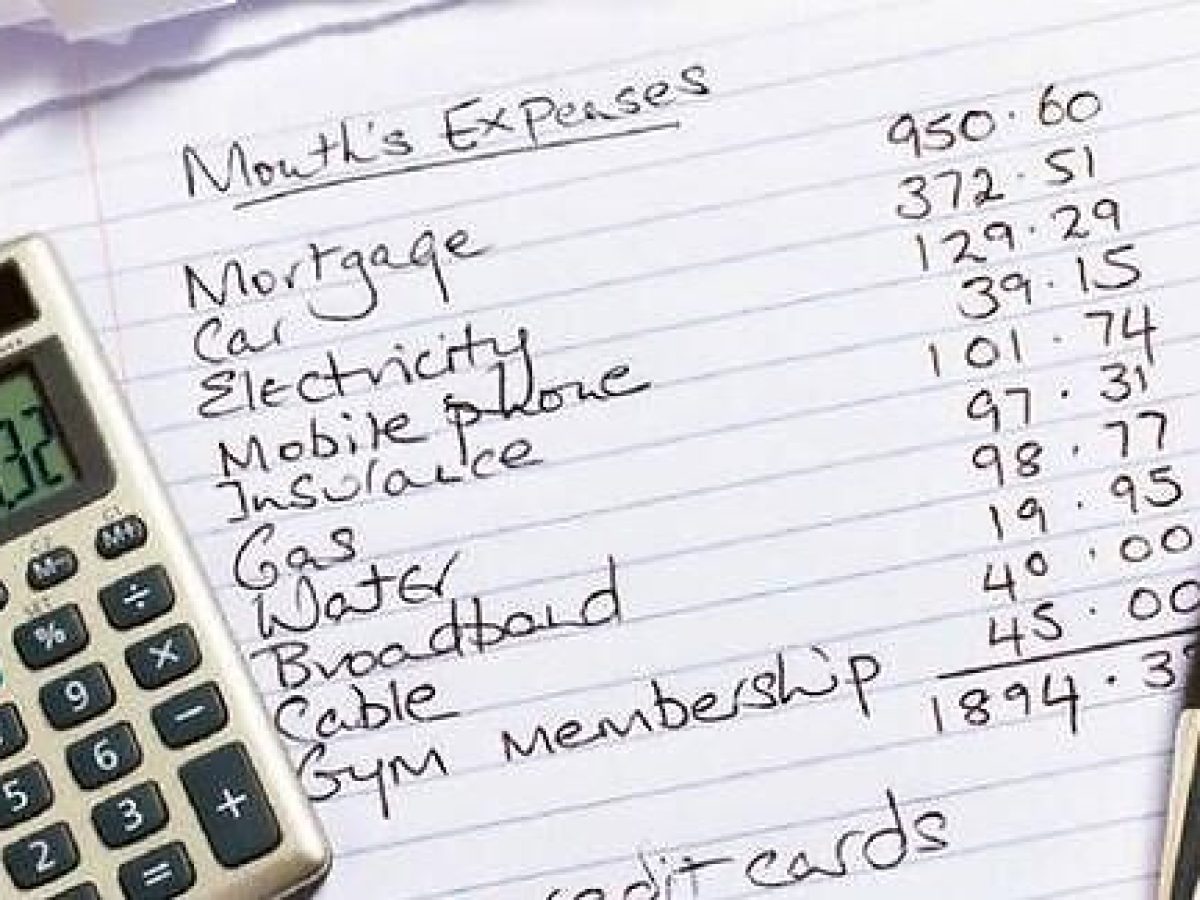 Month's Expenses
Mortgage 950.60
Car 372.51
Electricity 129.29
Mobile phone 39.15
Insurance 101.74
Gas 97.31
Water 98.77
Broadband 19.95
Cable 40.00
Gym Membership 45.00
1894.3
cards
.32
M-
M+
%
÷
9
×
6
−
5
3
+
2
=